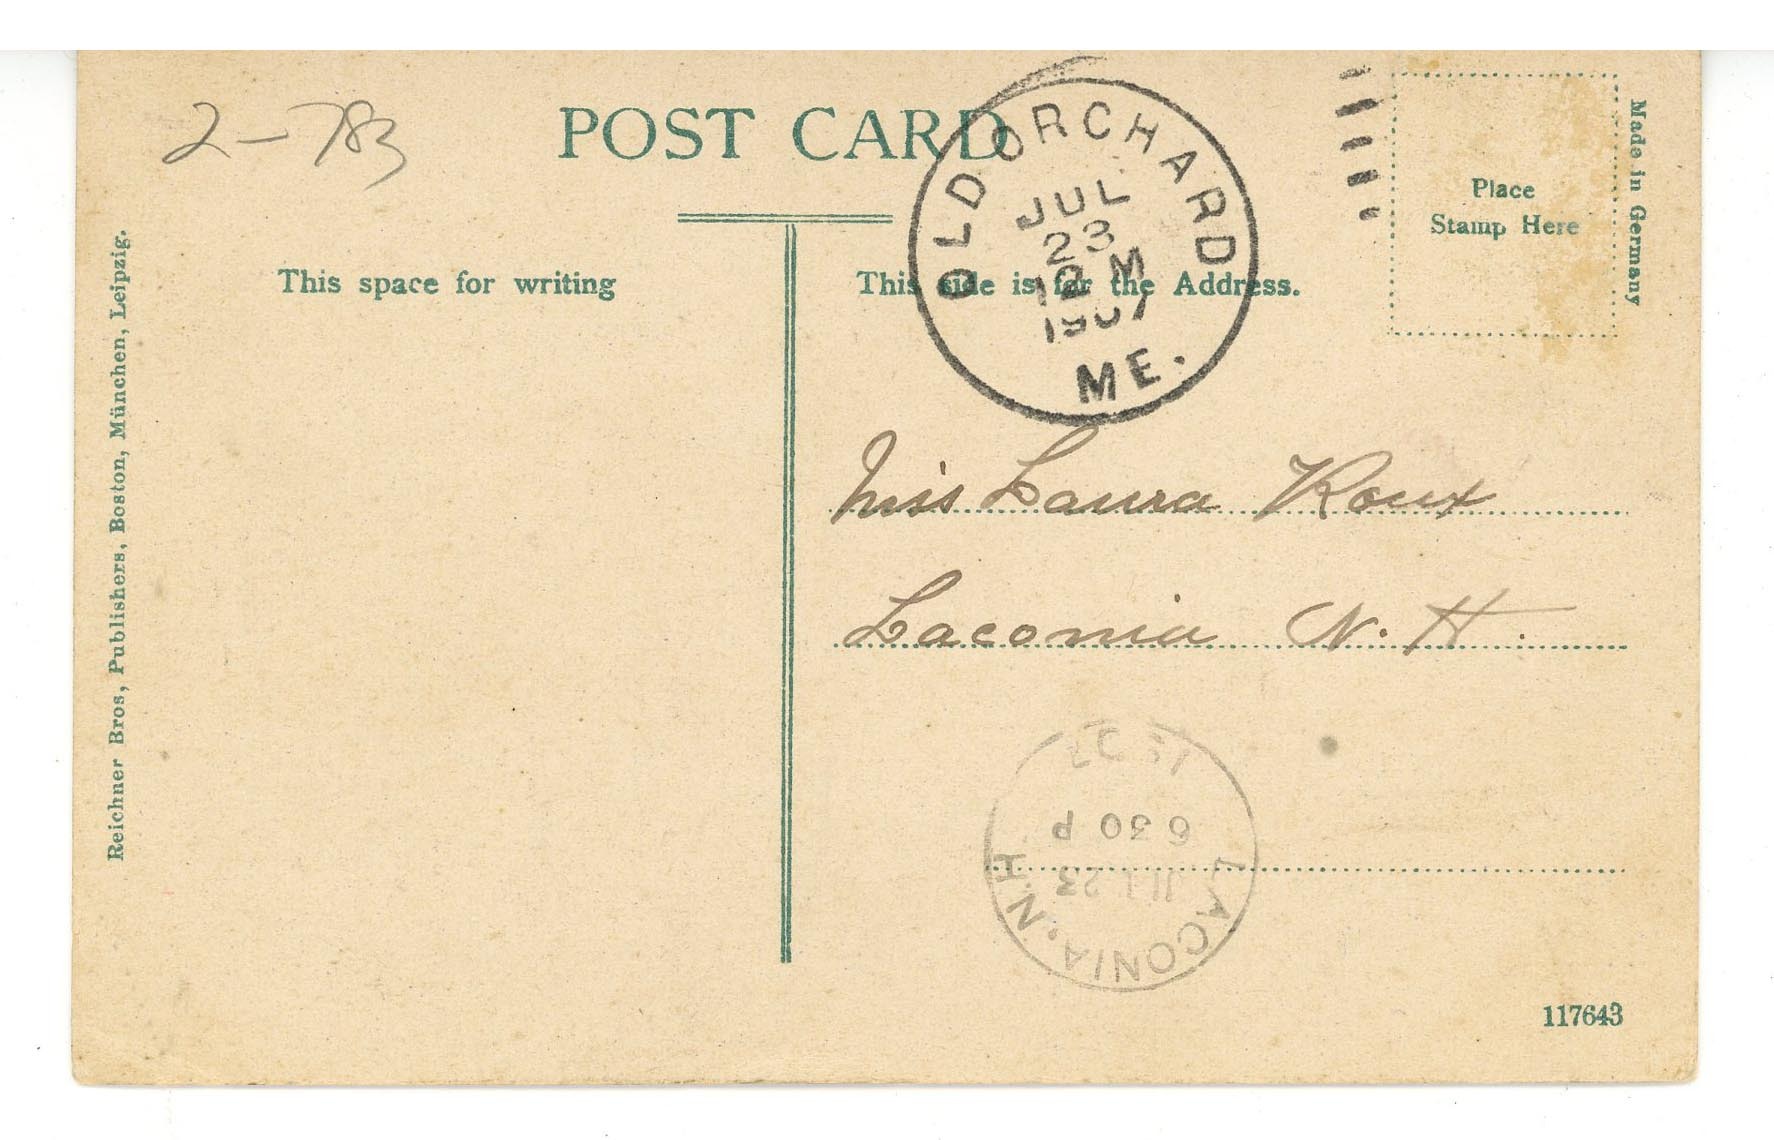 2-783
POST CARD
OLD ORCHARD
JUL
23
12 M
1907
ME.
Place
Stamp Here
Made in Germany
This space for writing
This side is for the Address.
Reichner Bros, Publishers, Boston, München, Leipzig.
Miss Laura Roux
Laconia N. H.
LACONIA. N.H.
JUL 23
6 30 P
117643